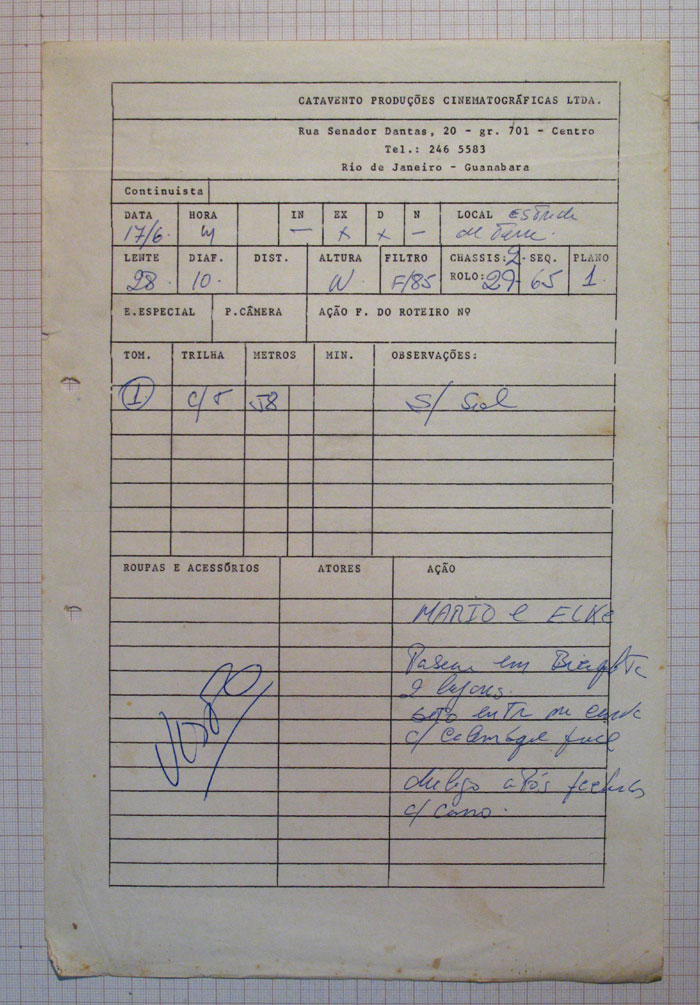 CATAVENTO PRODUÇÕES CINEMATOGRÁFICAS LTDA.
Rua Senador Dantas, 20 - gr. 701 - Centro
Tel.: 246 5583
Rio de Janeiro - Guanabara
Continuista
DATA HORA IN EX D N LOCAL Estrada
17/6. M — x x — de Terra.
LENTE DIAF. DIST. ALTURA FILTRO CHASSIS: 2- SEQ. PLANO
28. 10. N F/85 ROLO: 29- 65 1.
E.ESPECIAL P.CÂMERA AÇÃO F. DO ROTEIRO Nº
TOM. TRILHA METROS MIN. OBSERVAÇÕES:
1 C/5 58 S/ Sol
ROUPAS E ACESSÓRIOS ATORES AÇÃO
MARIO e ELKE
em
2
entra
c/
após
c/ carro.